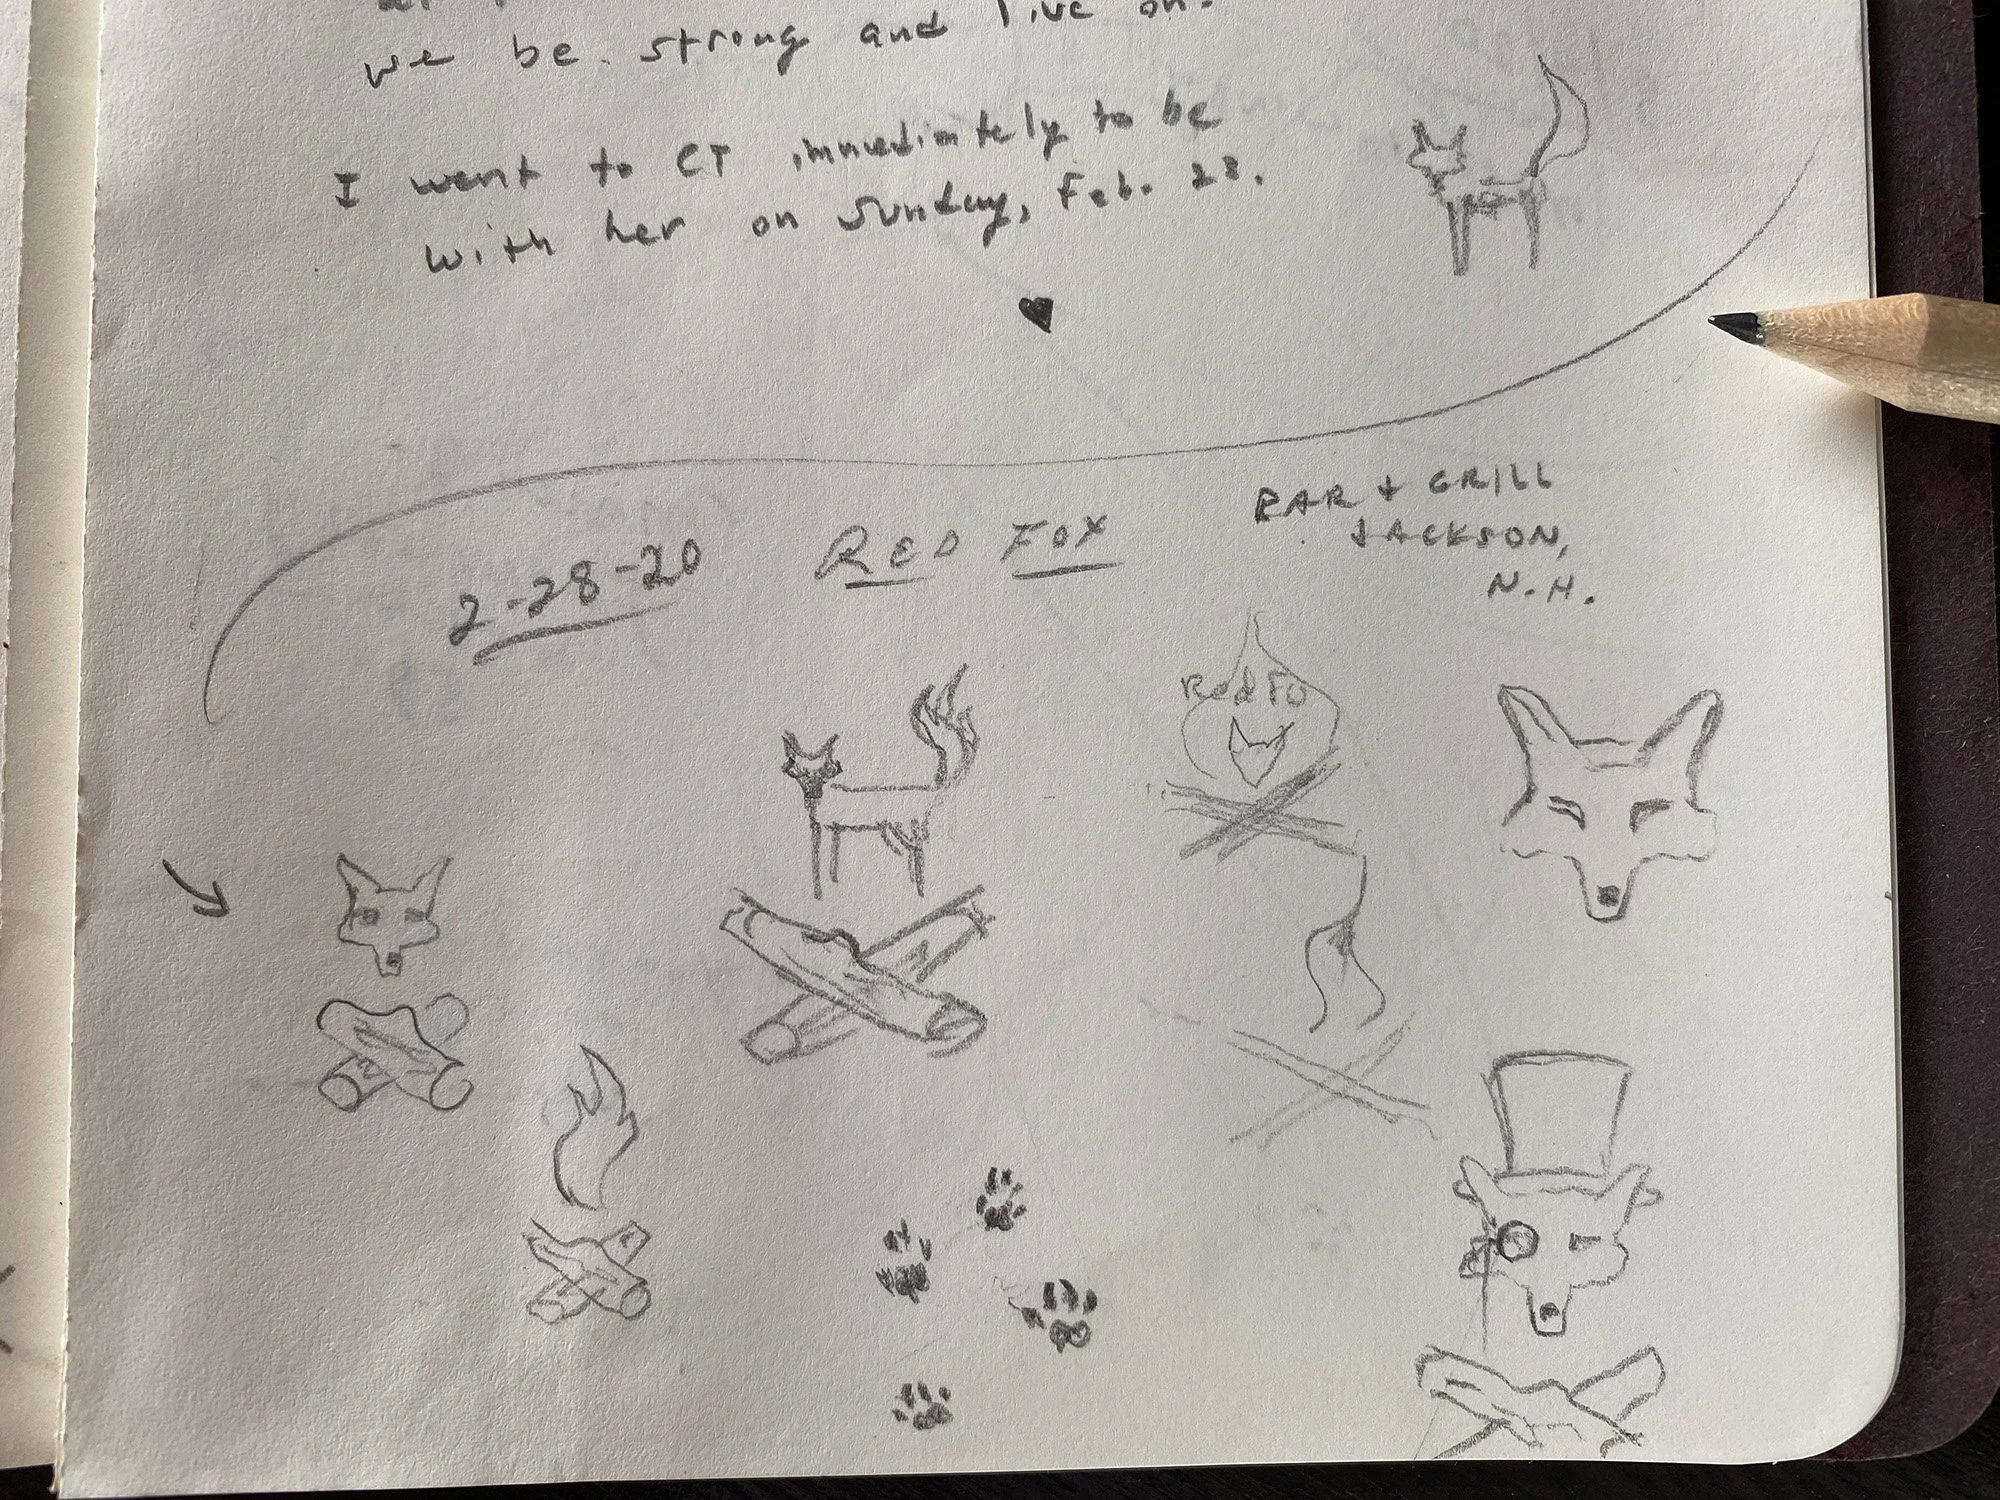 we be strong and live on.
I went to CT immediately to be
with her on Sunday, Feb. 28.
2-28-20 RED FOX
BAR + GRILL
JACKSON,
N.H.
Red Fo